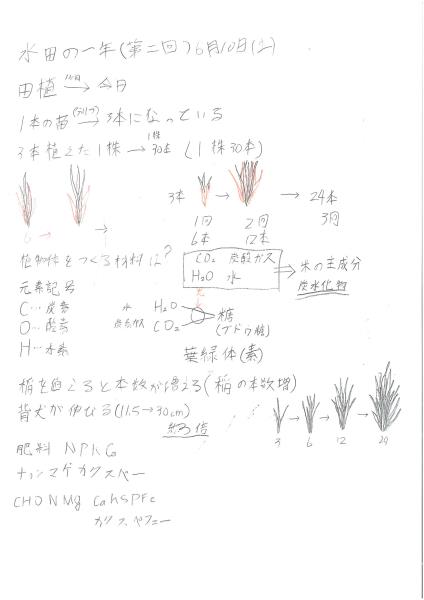 水田の一年(第二回)6月10日(土)
田植 → 今日
1本の苗 → 3本になっている
3本植えた1株 → 30本 (1株30本)
1株
3本 → → 24本
1回 2回 3回
6本 12本
植物体をつくる材料は?
CO₂ 炭酸ガス
H₂O 水
⇒ 米の主成分
炭水化物
元素記号
C…炭素
O…酸素
H…水素
水 H₂O
炭酸ガス CO₂
糖
(ブドウ糖)
葉緑体(素)
稲を植えると本数が増える(稲の本数増)
背丈が伸びる(11.5→30cm)
約3倍
3 → 6 → 12 → 24
肥料 NPK
CHONMg